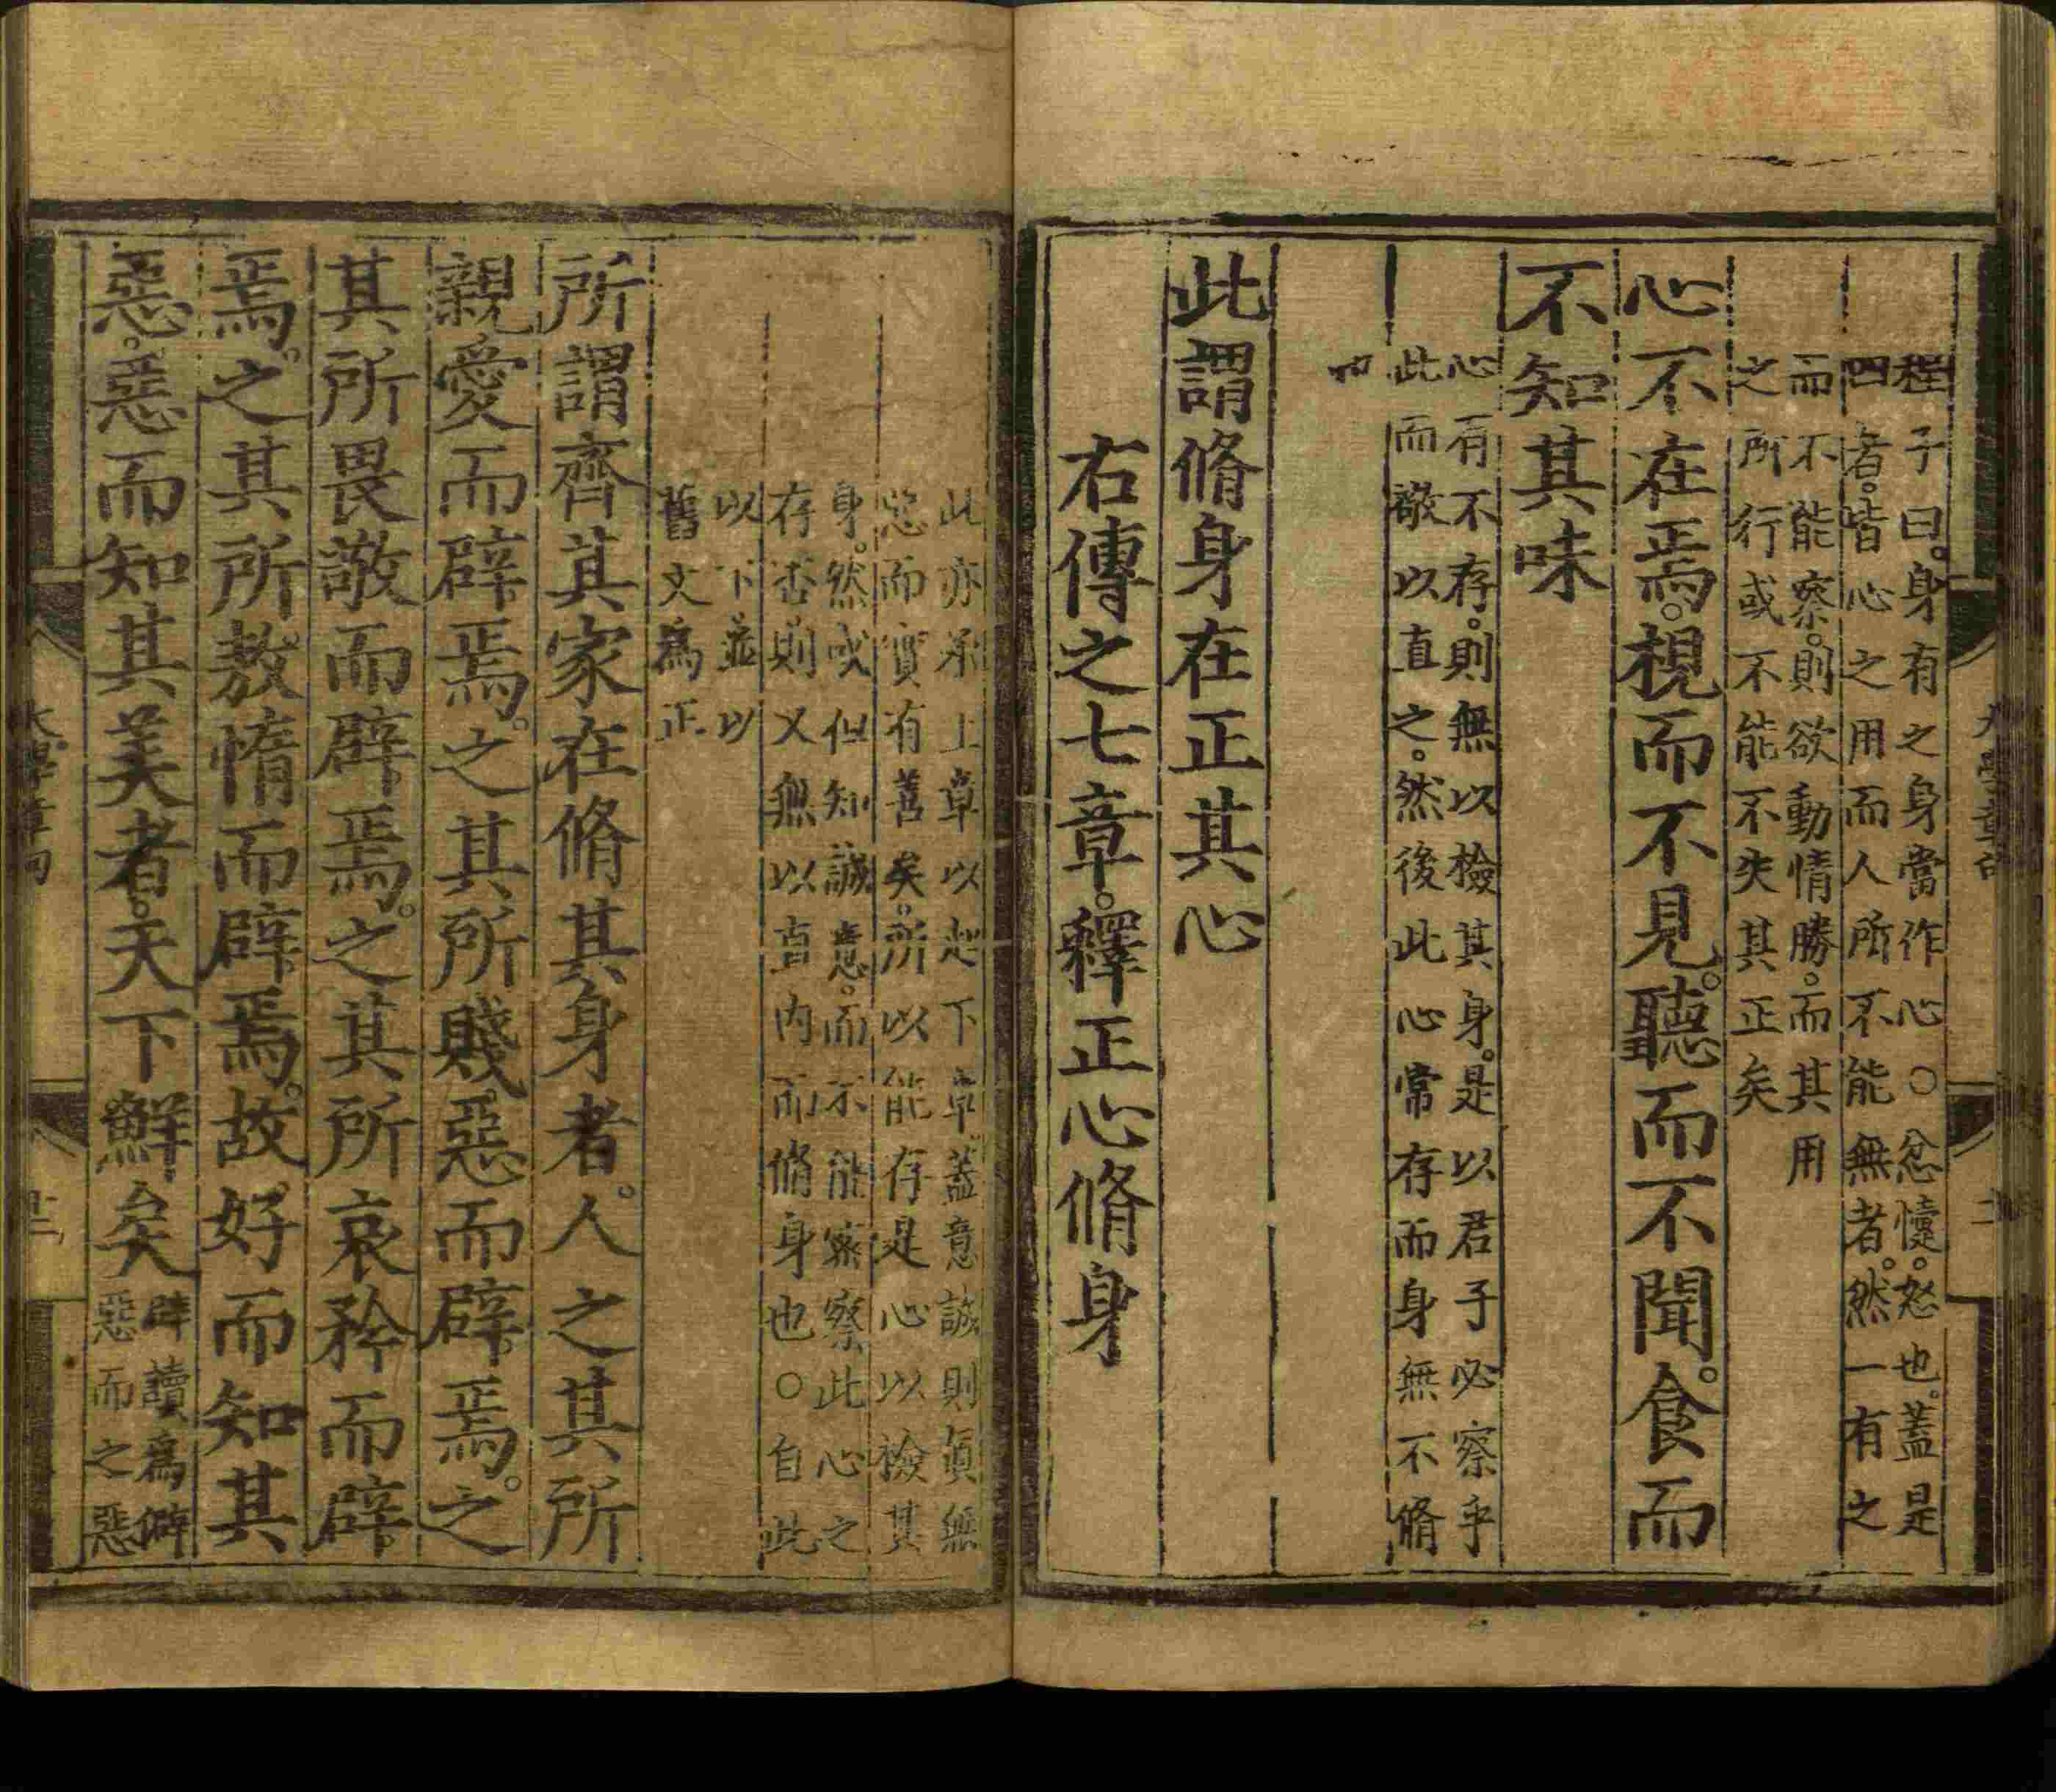 程子曰。身有之身當作心〇忿懥。怒也。蓋是
四者。皆心之用而人所不能無者。然一有之
而不能察。則欲動情勝。而其用
之所行或不能不失其正矣
心不在焉。視而不見。聽而不聞。食而
不知其味
心有不存。則無以檢其身。是以君子必察乎
此而敬以直之。然後此心常存而身無不脩
此謂脩身在正其心
右傳之七章。釋正心脩身
此亦承上章以起下章蓋意誠則眞無
惡而實有善矣。所以能存是心以檢其
身。然或但知誠意。而不能密察此心之
存否則又無以直內而脩身也〇自此
以下並以
舊文為正
所謂齊其家在脩其身者。人之其所
親愛而辟焉。之其所賤惡而辟焉。之
其所畏敬而辟焉。之其所哀矜而辟
焉。之其所敖惰而辟焉。故好而知其
惡。惡而知其美者。天下鮮矣
辟讀為僻
惡而之惡
大學章句